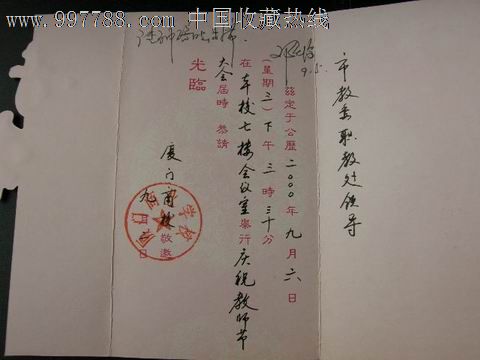 www.997788.com 中国收藏热线
市教委职教处领导
兹定于公歷二〇〇〇年九月六日
(星期三)下午三時三十分
在本校七楼会议室舉行庆祝教师节
大会屆時 恭請
光臨
厦门商校敬邀
九月 日
9.5.